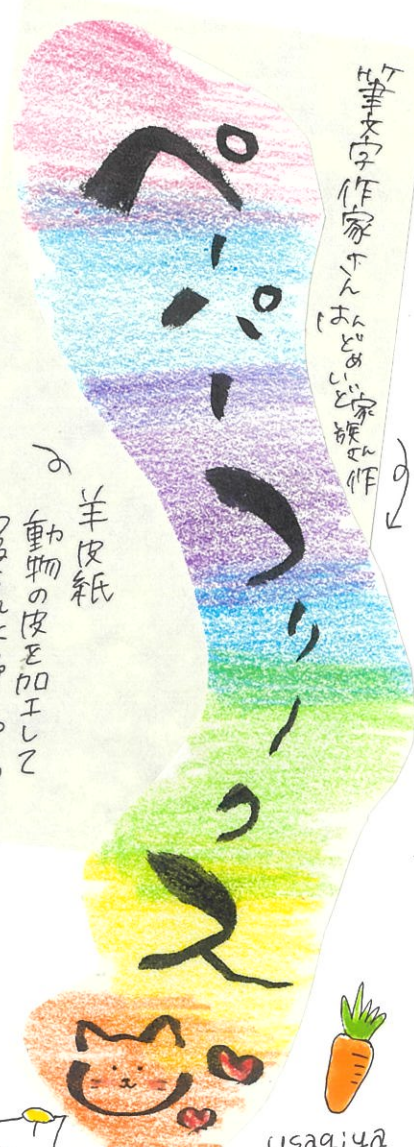 筆文字作家さん はんどめいど家族さん作
ペーパーフリークス
羊皮紙
動物の皮を加工して
usagiya